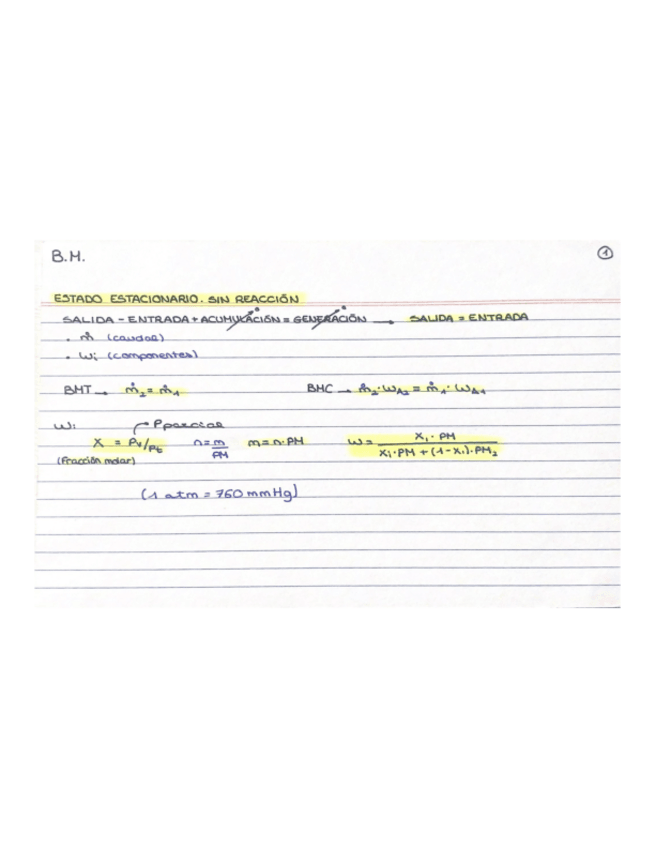 B.M.
①
ESTADO ESTACIONARIO. SIN REACCIÓN
SALIDA - ENTRADA + ACUMULACIÓN = GENERACIÓN → SALIDA = ENTRADA
• ṁ (caudal)
• Wi (componentes)
BMT → ṁ₂ = ṁ₁ BMC → ṁ₂·WA₂ = ṁ₁·WA₁
Wi
Pparcial
X = Pv/Pt n = m/PM m = n·PM W = X₁·PM / X₁·PM + (1-X₁)·PM₂
(Fracción molar)
(1 atm = 760 mmHg)